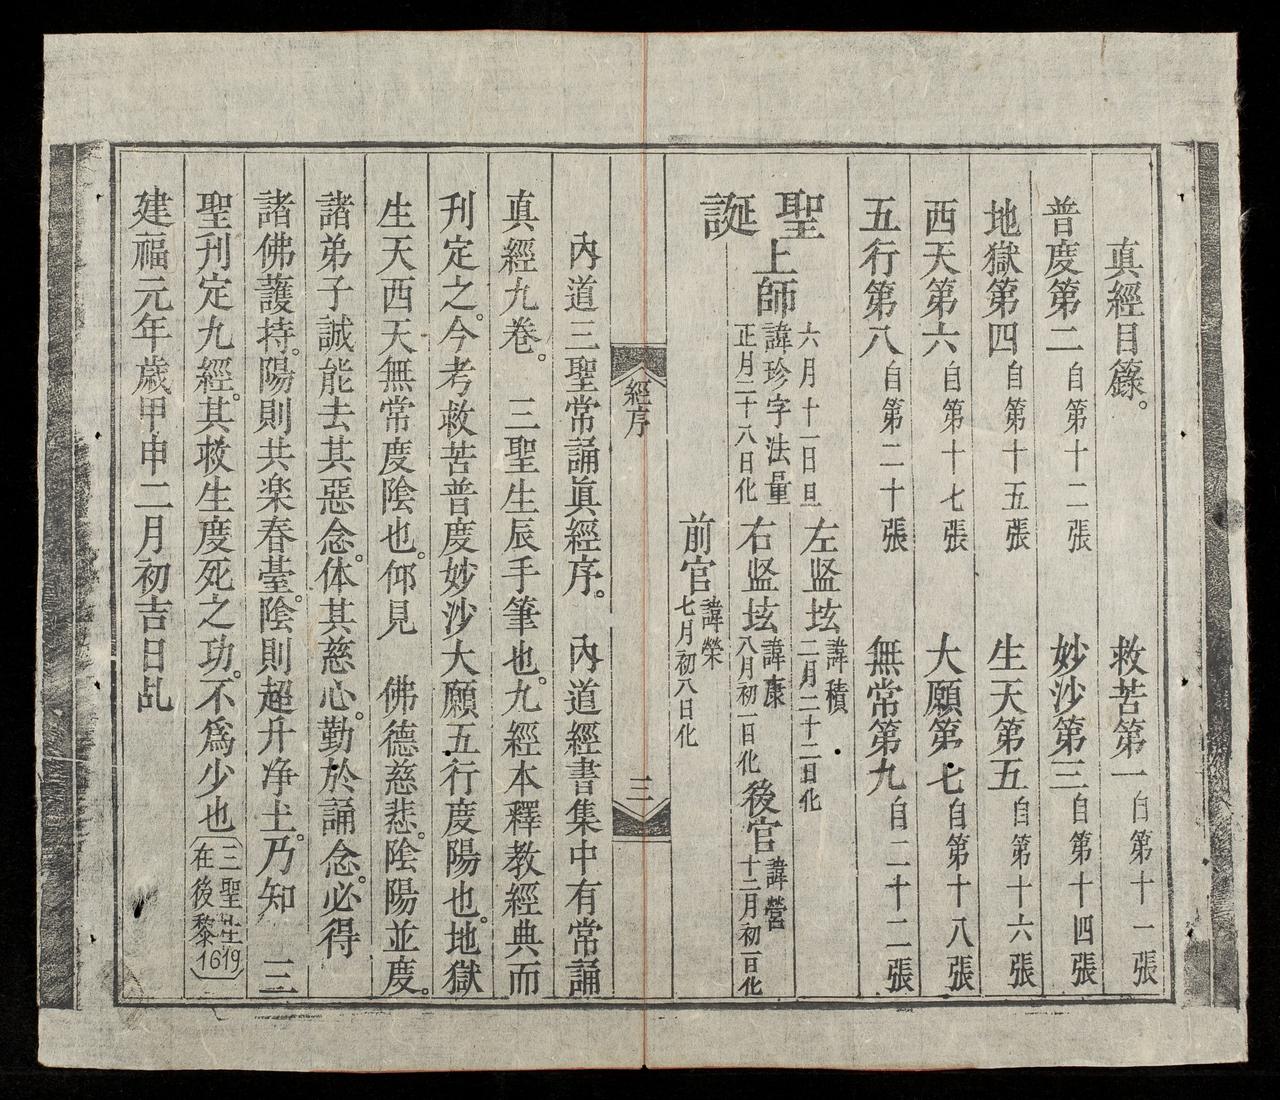 真經目籙。 救苦第一自第十一張
普度第二自第十二張 妙沙第三自第十四張
地獄第四自第十五張 生天第五自第十六張
西天第六自第十七張 大願第七自第十八張
五行第八自第二十張 無常第九自二十二張
聖誕
上師 六月十一日旦 諱珍字法量 正月二十八日化
左竖㘫 諱積 二月二十二日化
右竖㘫 諱康 八月初一日化
後官 諱營 十二月初一日化
前官 諱榮 七月初八日化
經序 三
內道三聖常誦眞經序。 內道經書集中有常誦
真經九卷。 三聖生辰手筆也。九經本釋教經典而
刋定之。今考救苦普度妙沙大願五行度陽也。地獄
生天西天無常度陰也。仰見 佛德慈悲。陰陽並度。
諸弟子誠能去其惡念。体其慈心。勤於誦念。必得
諸佛護持。陽則共楽春臺。陰則超升净土。乃知 三
聖刋定九經。其救生度死之功。不爲少也 三聖生在後黎1619
建福元年歲甲申二月初吉日乩